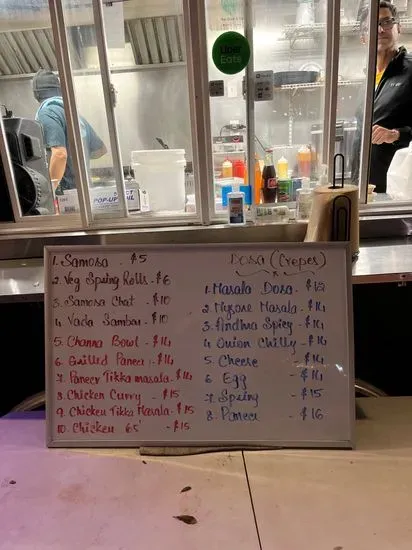 Uber
Eats
POP-UP
1. Samosa - $5
2. Veg Spring Rolls - $6
3. Samosa Chat - $10
4. Vada Sambar - $10
5. Channa Bowl - $14
6. Grilled Paneer - $14
7. Paneer Tikka masala - $14
8. Chicken Curry - $15
9. Chicken Tikka Masala - $15
10. Chicken 65' - $15
Dosa (Crepes)
1. Masala Dosa - $12
2. Mysore Masala - $14
3. Andhra Spicy - $14
4. Onion Chilly - $14
5. Cheese - $14
6. Egg - $14
7. Spring - $15
8. Paneer - $16